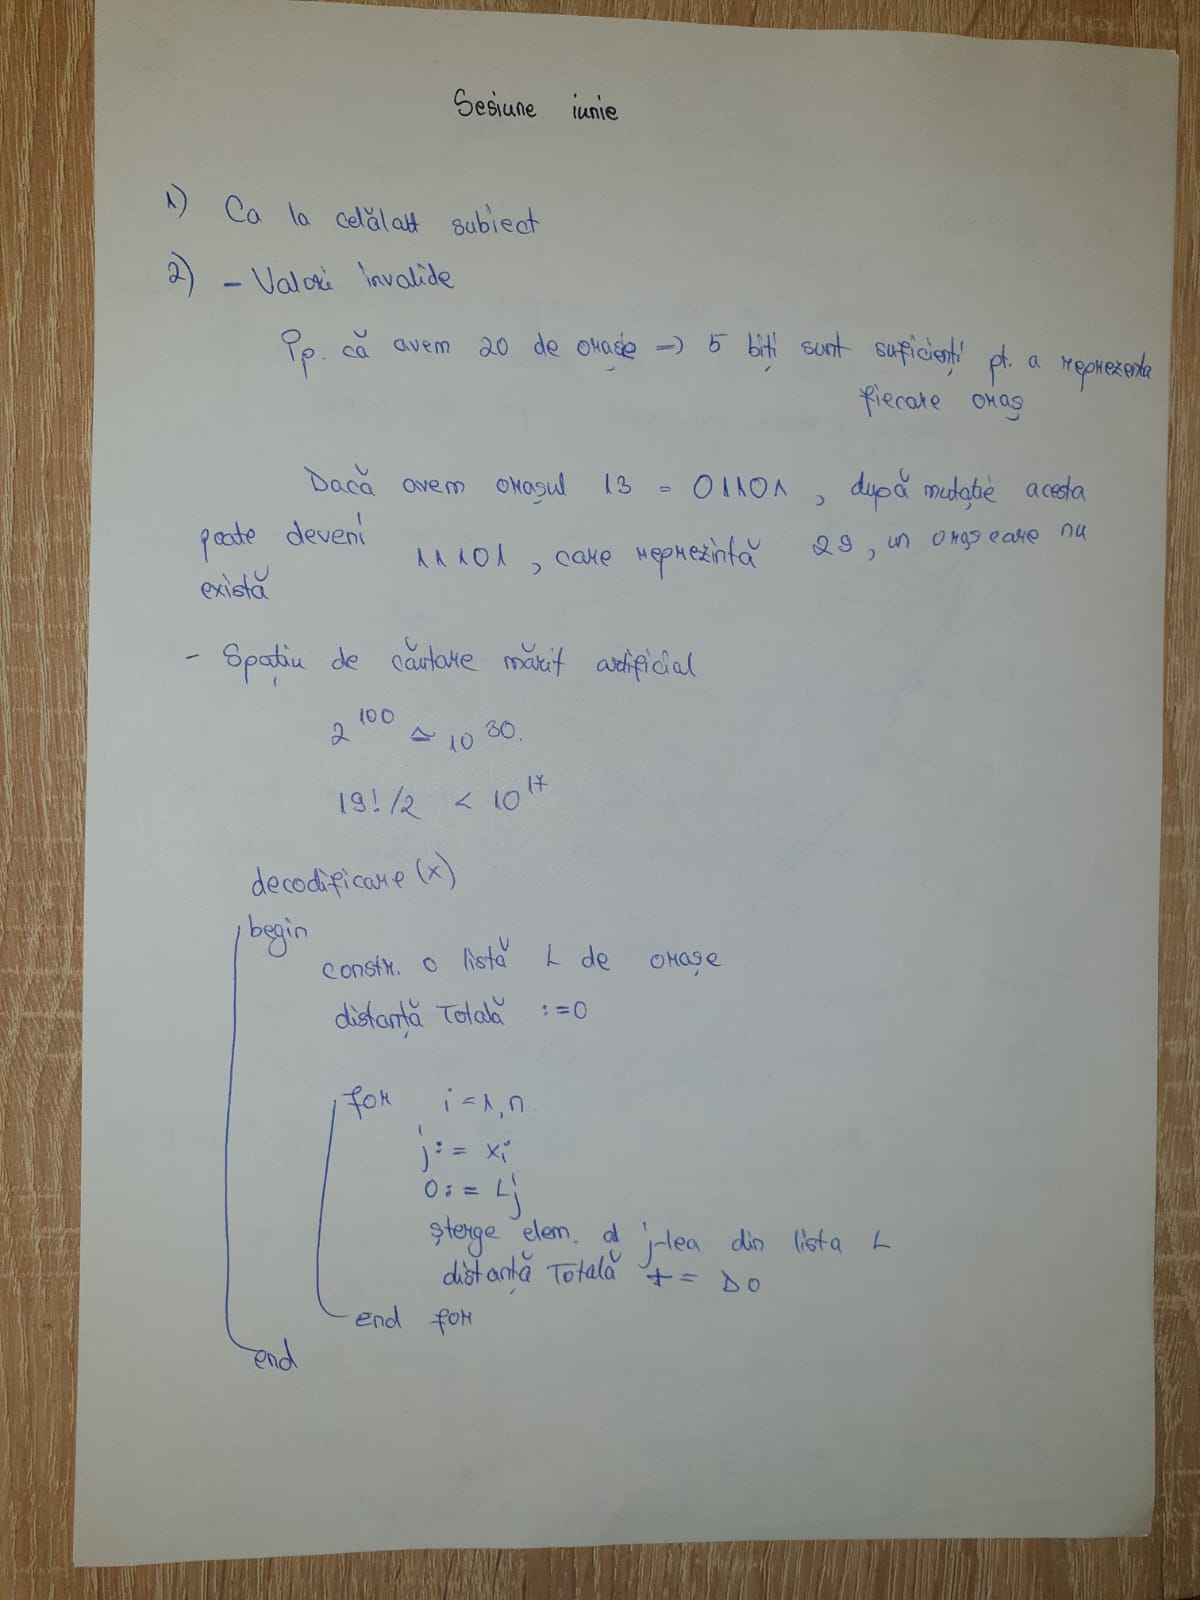 Sesiune iunie
1) Ca la celălalt subiect
2) - Valori invalide
Pp. că avem 20 de orașe => 5 biți sunt suficienți pt. a reprezenta
fiecare oraș
Dacă avem orașul 13 = 01101, după mutație acesta
poate deveni 11101, care reprezintă 29, un oraș care nu
există
- Spațiu de căutare mărit artificial
2^100 ≃ 10^30.
19!/2 < 10^17
decodificare (x)
begin
constr. o listă L de orașe
distanță Totală :=0
for i=1,n.
j:= xi
O:= Lj
șterge elem. al j-lea din lista L
distanță Totală += DO
end for
end